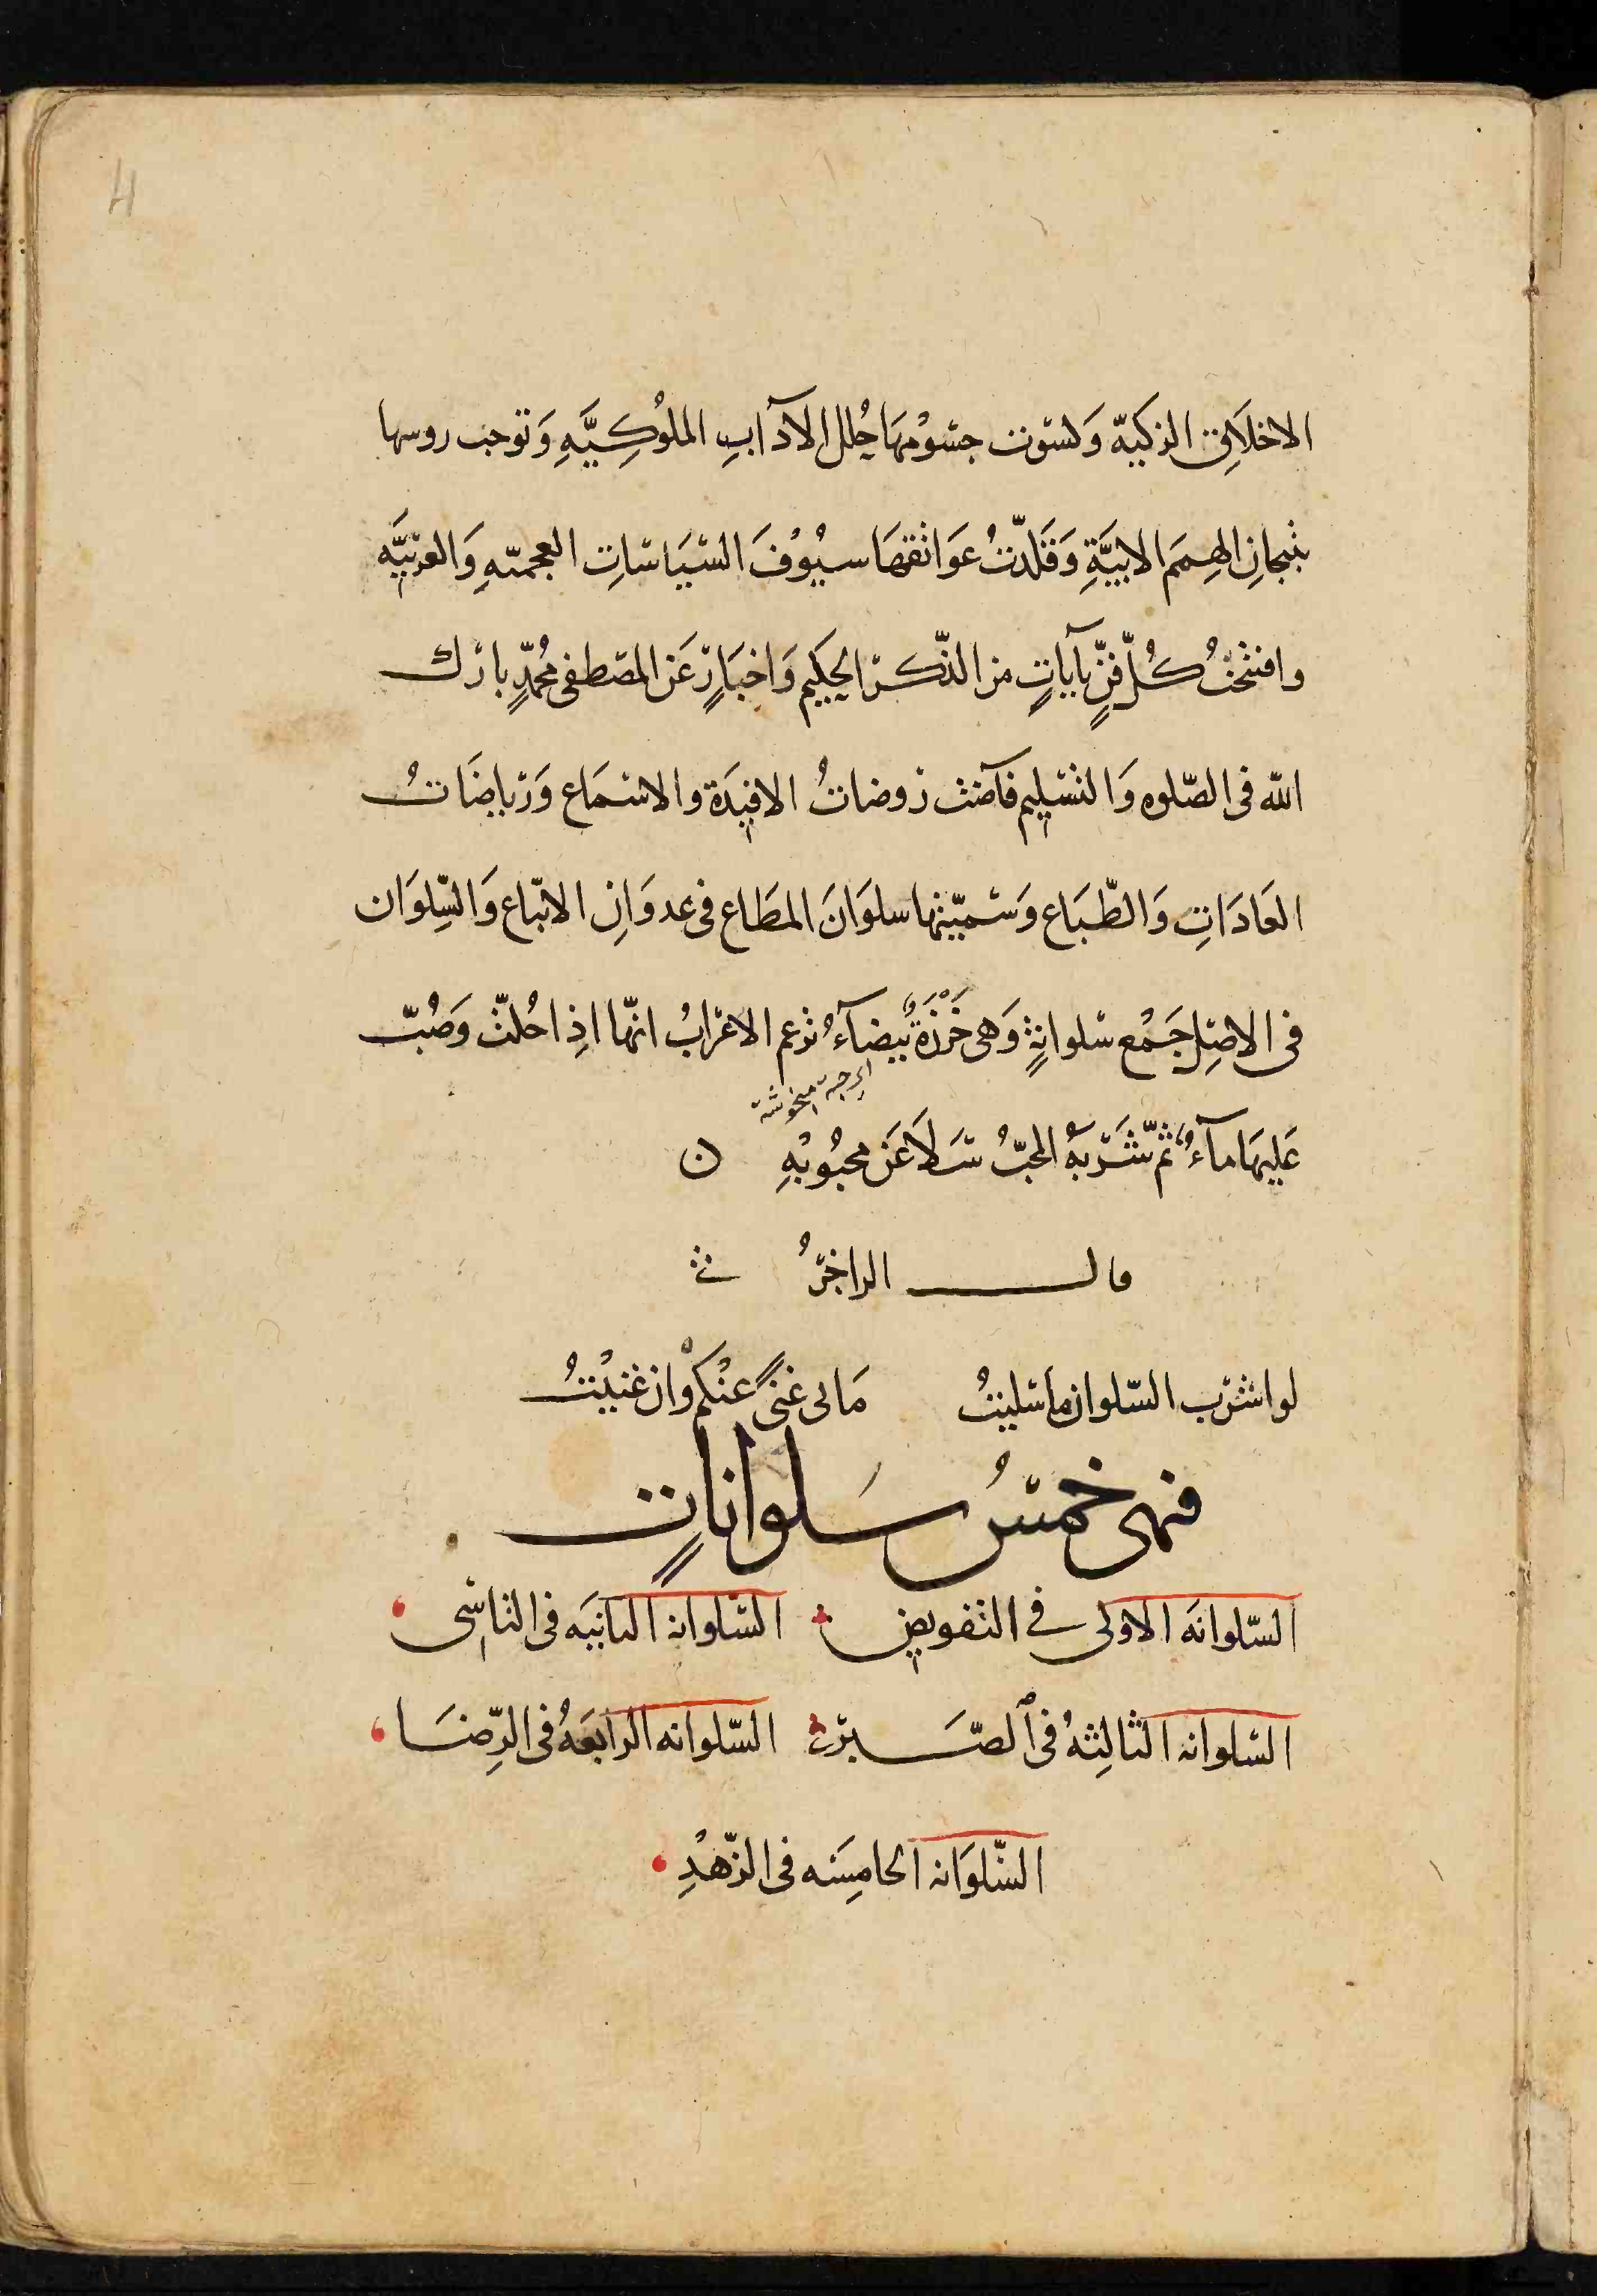 الاخلَاقِ الزكيّه وَكسَوت جسُوْمهَا حُلل الآدابِ الملُوكِيَّهِ وَتوجت روسها
بتيجانِ الهِمَم الابيَّةِ وَقَلّدتُ عوَاتقهَا سيُوْفَ السّيَاسَاتِ العجميّهِ وَالعربيَّه
وافتتحتُ كُلّ فنٍّ بآياتٍ من الذّكر الحكيم وَاخبَارٍ عَن المصطفى مُحمّدٍ بارك
الله فى الصّلوه وَالتسْلِيم فآضت روضاتُ الافئِدَة والاسْمَاع وَرياضَاتُ
العَادَاتِ وَالطّبَاع وَسَميّتها سلوَانَ المطَاع فى عدوَانِ الاتبَاع وَالسّلوَان
فى الاصْل جَمْع سلوانةٍ وَهى خَرْزَةٌ بيضآءُ تزعم الاعْرابُ انّها اذِا حُكّت وَصُبّ
عَليهَا مآءٌ ثم شَربَهُ المحبّ سَلَا عَن محبُوْبهِ ن
قال الراجزُ
لو اشرَب السّلوان ما سَليتُ مَا بى غنىً عنْكمْ وان غنيْتُ
فهى خمسُ سَلواناتٍ
السّلوانَه الاولى فى التفويض السّلوانه الثانيَه فى التاسّى
السّلوانه الثالِثهُ فى الصَّبر السّلوانه الرابعَهُ فى الرِّضَا
السّلوَانه الخامِسَه فى الزّهْدِ
4